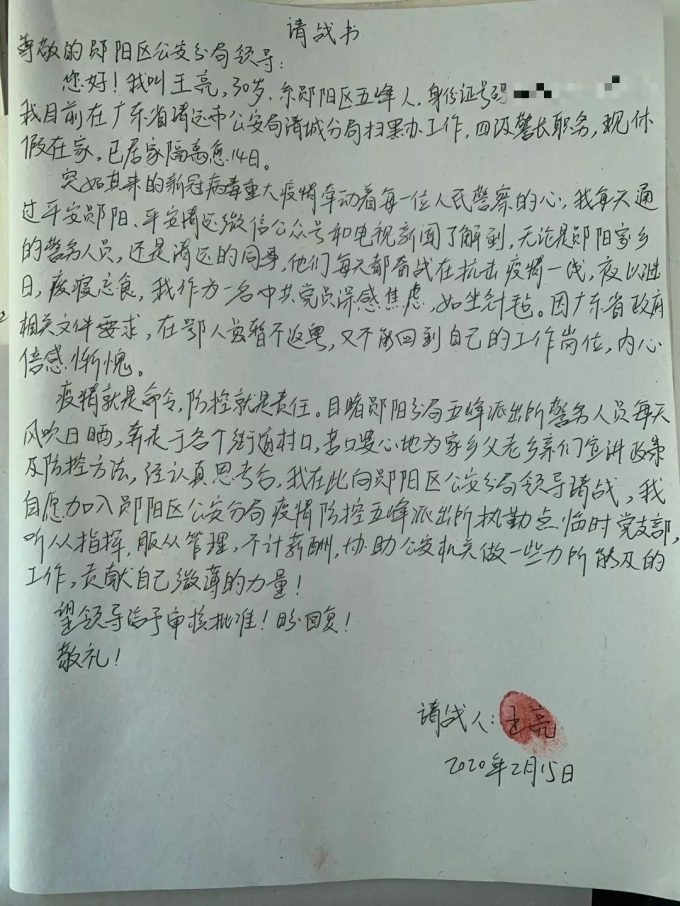 请战书
尊敬的郧阳区公安分局领导:
您好!我叫王亮,30岁,系郧阳区五峰人,身份证号码
我目前在广东省清远市公安局清城分局扫黑办工作,四级警长职务,现休
假在家,已居家隔离14日。
突如其来的新冠病毒重大疫情牵动着每一位人民警察的心,我每天通
过平安郧阳、平安清远微信公众号和电视新闻了解到,无论是郧阳家乡
的警务人员,还是清远的同事,他们每天都奋战在抗击疫情一线,夜以继
日,废寝忘食,我作为一名中共党员深感焦虑,如坐针毡。因广东省政府
相关文件要求,在鄂人员暂不返粤,又不能回到自己的工作岗位,内心
倍感惭愧。
疫情就是命令,防控就是责任。目睹郧阳分局五峰派出所警务人员每天
风吹日晒,奔走于各个街道村口,苦口婆心地为家乡父老乡亲们宣讲政策
及防控方法,经认真思考后,我在此向郧阳区公安分局领导请战,我
自愿加入郧阳区公安分局疫情防控五峰派出所执勤点临时党支部,
听从指挥,服从管理,不计薪酬,协助公安机关做一些力所能及的
工作,贡献自己微薄的力量!
望领导给予审核批准!盼回复!
敬礼!
请战人:王亮
2020年2月15日